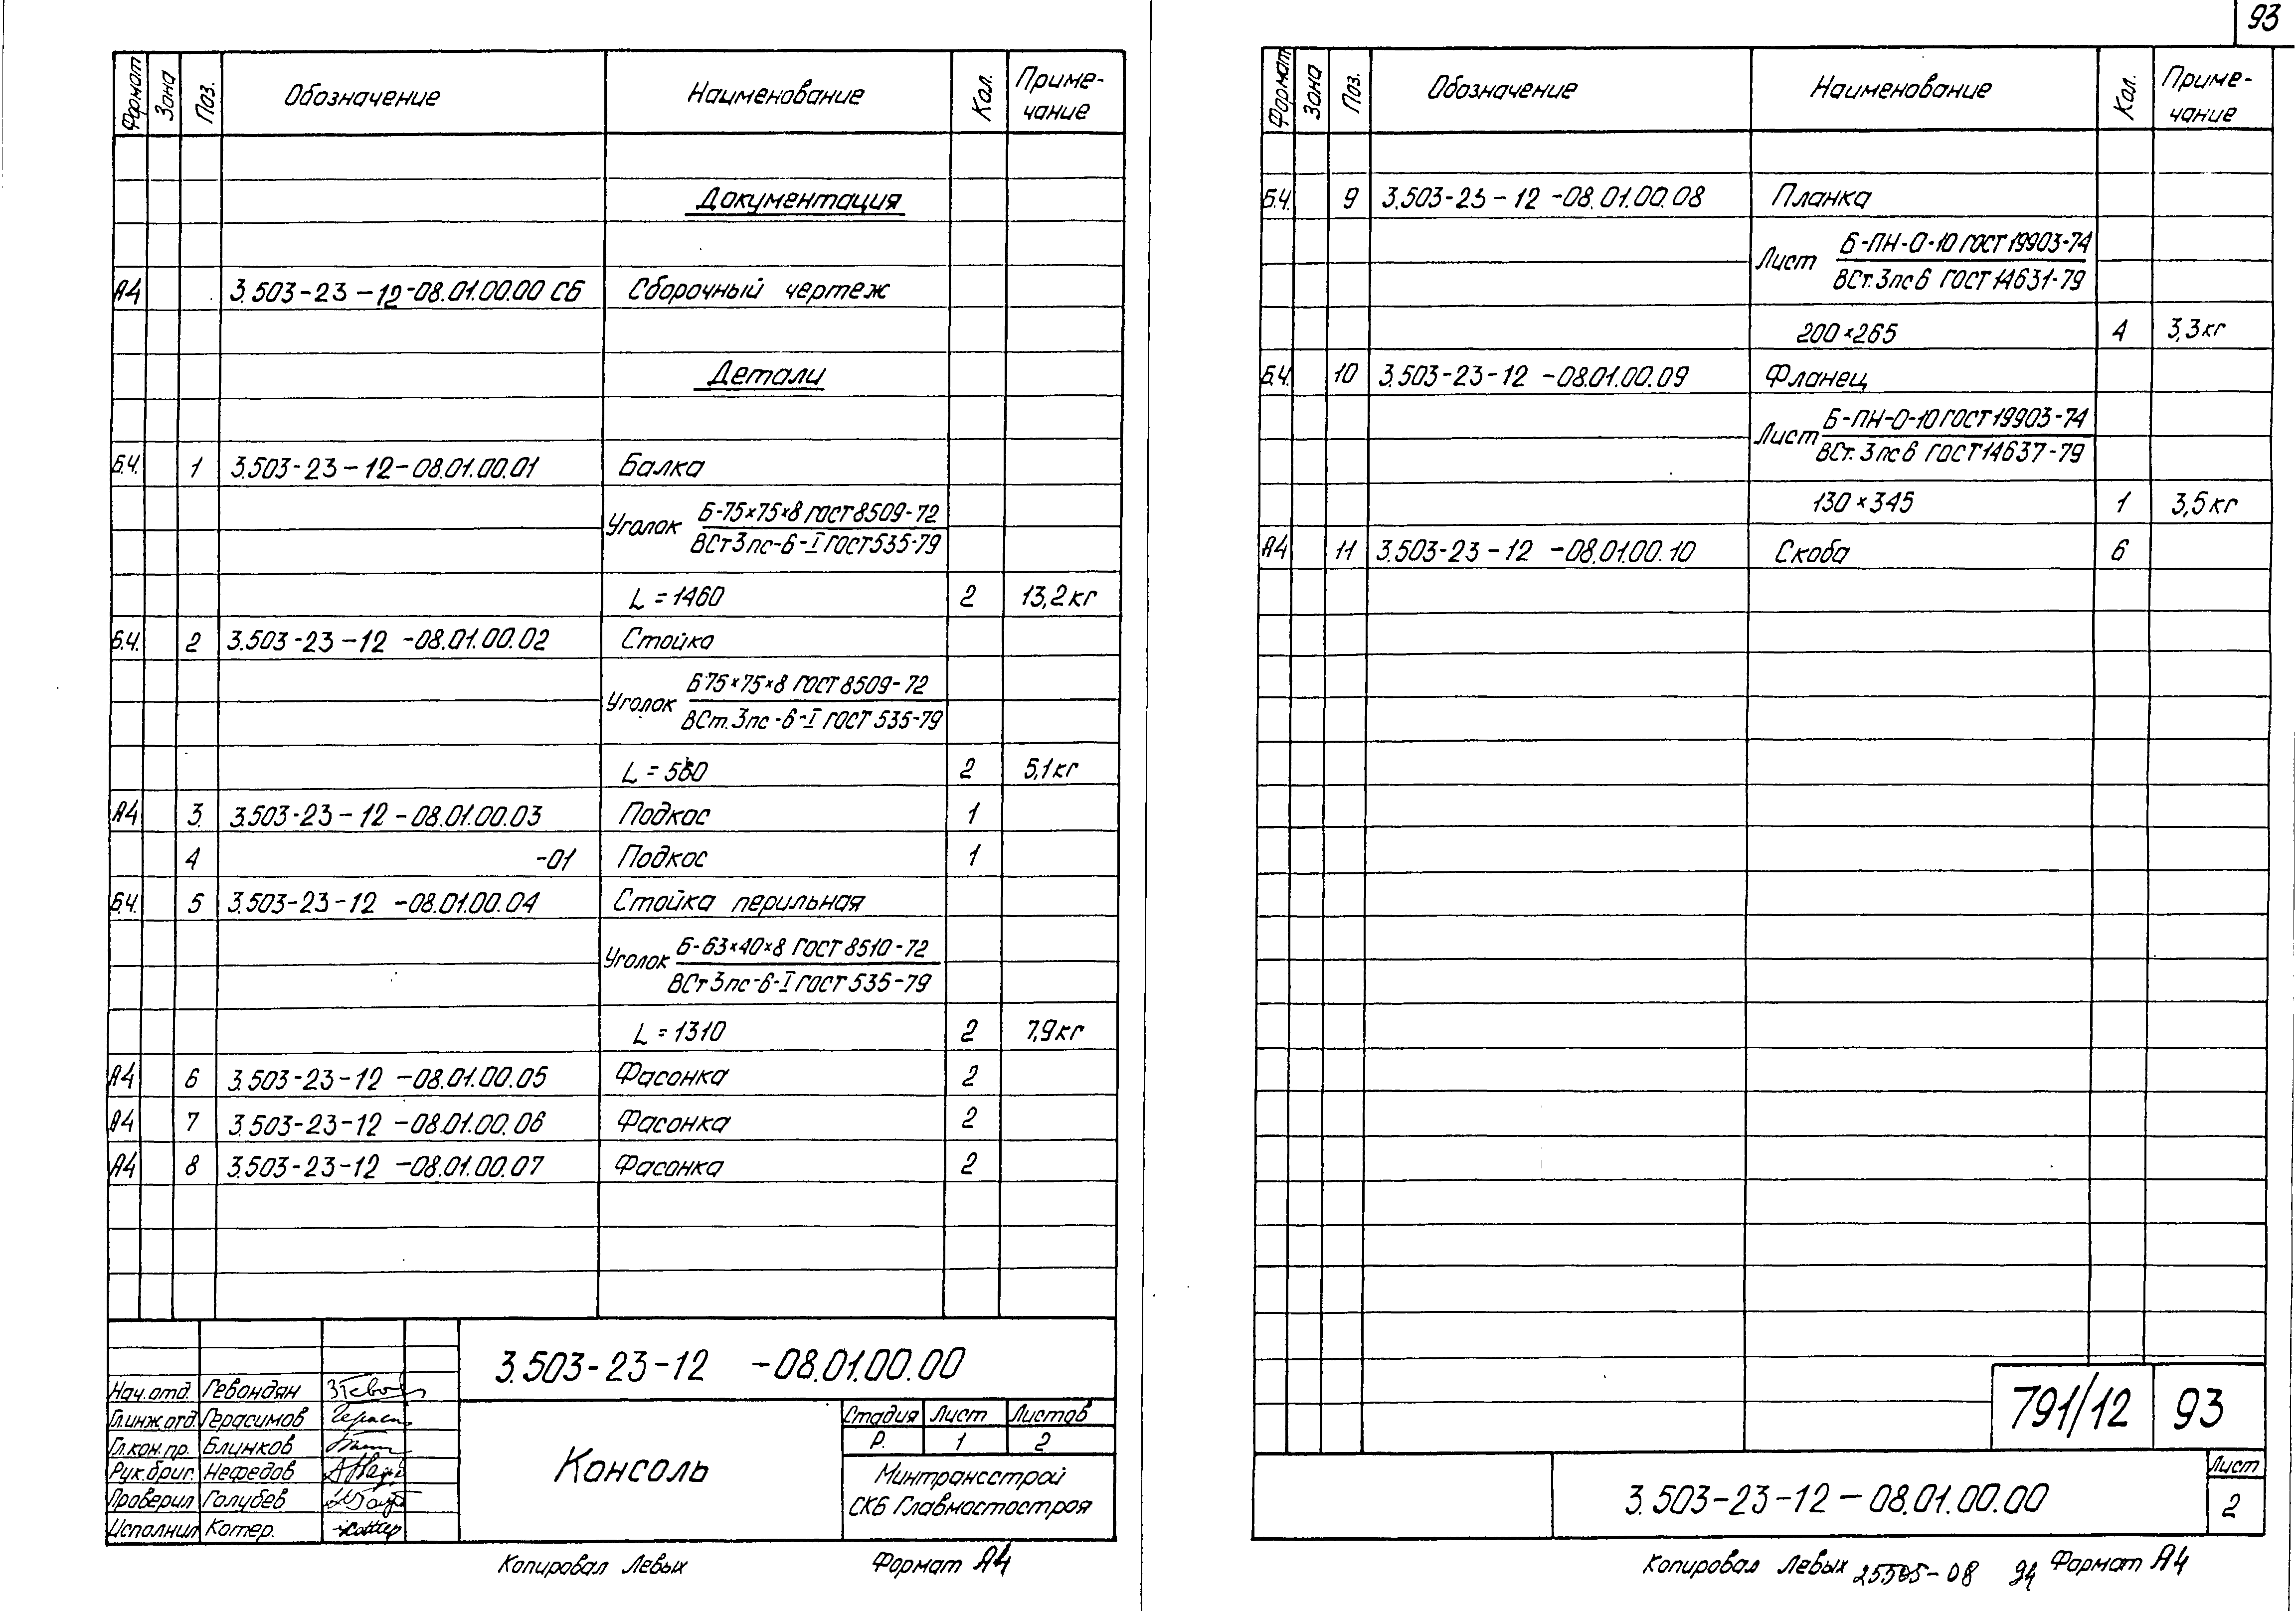 93
Формат Зона Поз. Обозначение Наименование Кол. Приме-
чание
Документация
А4 3.503-23-12-08.01.00.00 СБ Сборочный чертеж
Детали
Б.Ч. 1 3.503-23-12-08.01.00.01 Балка
Уголок Б-75×75×8 ГОСТ 8509-72
ВСт3пс-6-I ГОСТ 535-79
L = 1460 2 13,2кг
Б.Ч. 2 3.503-23-12-08.01.00.02 Стойка
Уголок Б75×75×8 ГОСТ 8509-72
ВСт.3пс-6-I ГОСТ 535-79
L = 560 2 5,1кг
А4 3. 3.503-23-12-08.01.00.03 Подкос 1
4 -01 Подкос 1
Б.Ч. 5 3.503-23-12-08.01.00.04 Стойка перильная
Уголок Б-63×40×8 ГОСТ 8510-72
ВСт3пс-6-I ГОСТ 535-79
L = 1310 2 7,9кг
А4 6 3.503-23-12-08.01.00.05 Фасонка 2
А4 7 3.503-23-12-08.01.00.06 Фасонка 2
А4 8 3.503-23-12-08.01.00.07 Фасонка 2
3.503-23-12 -08.01.00.00
Нач.отд. Гевондян
Гл.инж.отд. Герасимов
Гл.кон.пр. Блинков
Рук.бриг. Нефедов
Проверил Голубев
Исполнил Котер.
Консоль
Стадия Лист Листов
Р. 1 2
Минтрансстрой
СКБ Главмостостроя
Копировал Левых Формат А4
Формат Зона Поз. Обозначение Наименование Кол. Приме-
чание
Б.Ч. 9 3.503-23-12-08.01.00.08 Планка
Лист Б-ПН-О-10 ГОСТ 19903-74
ВСт.3пс6 ГОСТ 14631-79
200×265 4 3,3кг
Б.Ч. 10 3.503-23-12-08.01.00.09 Фланец
Лист Б-ПН-О-10 ГОСТ 19903-74
ВСт.3пс6 ГОСТ 14637-79
130×345 1 3,5кг
А4 11 3.503-23-12-08.01.00.10 Скоба 6
791/12 93
3.503-23-12-08.01.00.00
Лист
2
Копировал Левых 25505-08 94 Формат А4